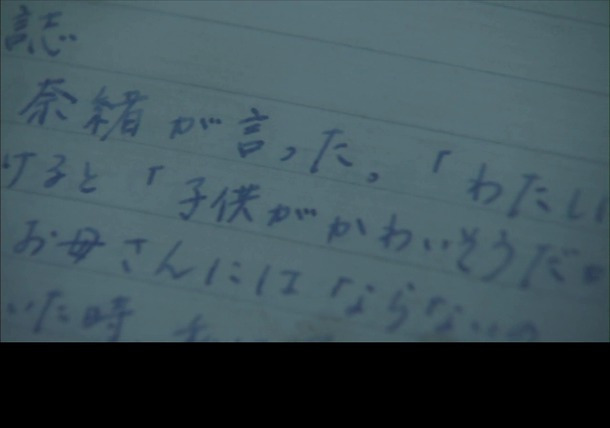 誌
奈緒が言った。「わたし
けると「子供がかわいそうだ
お母さんにはならない
いた時